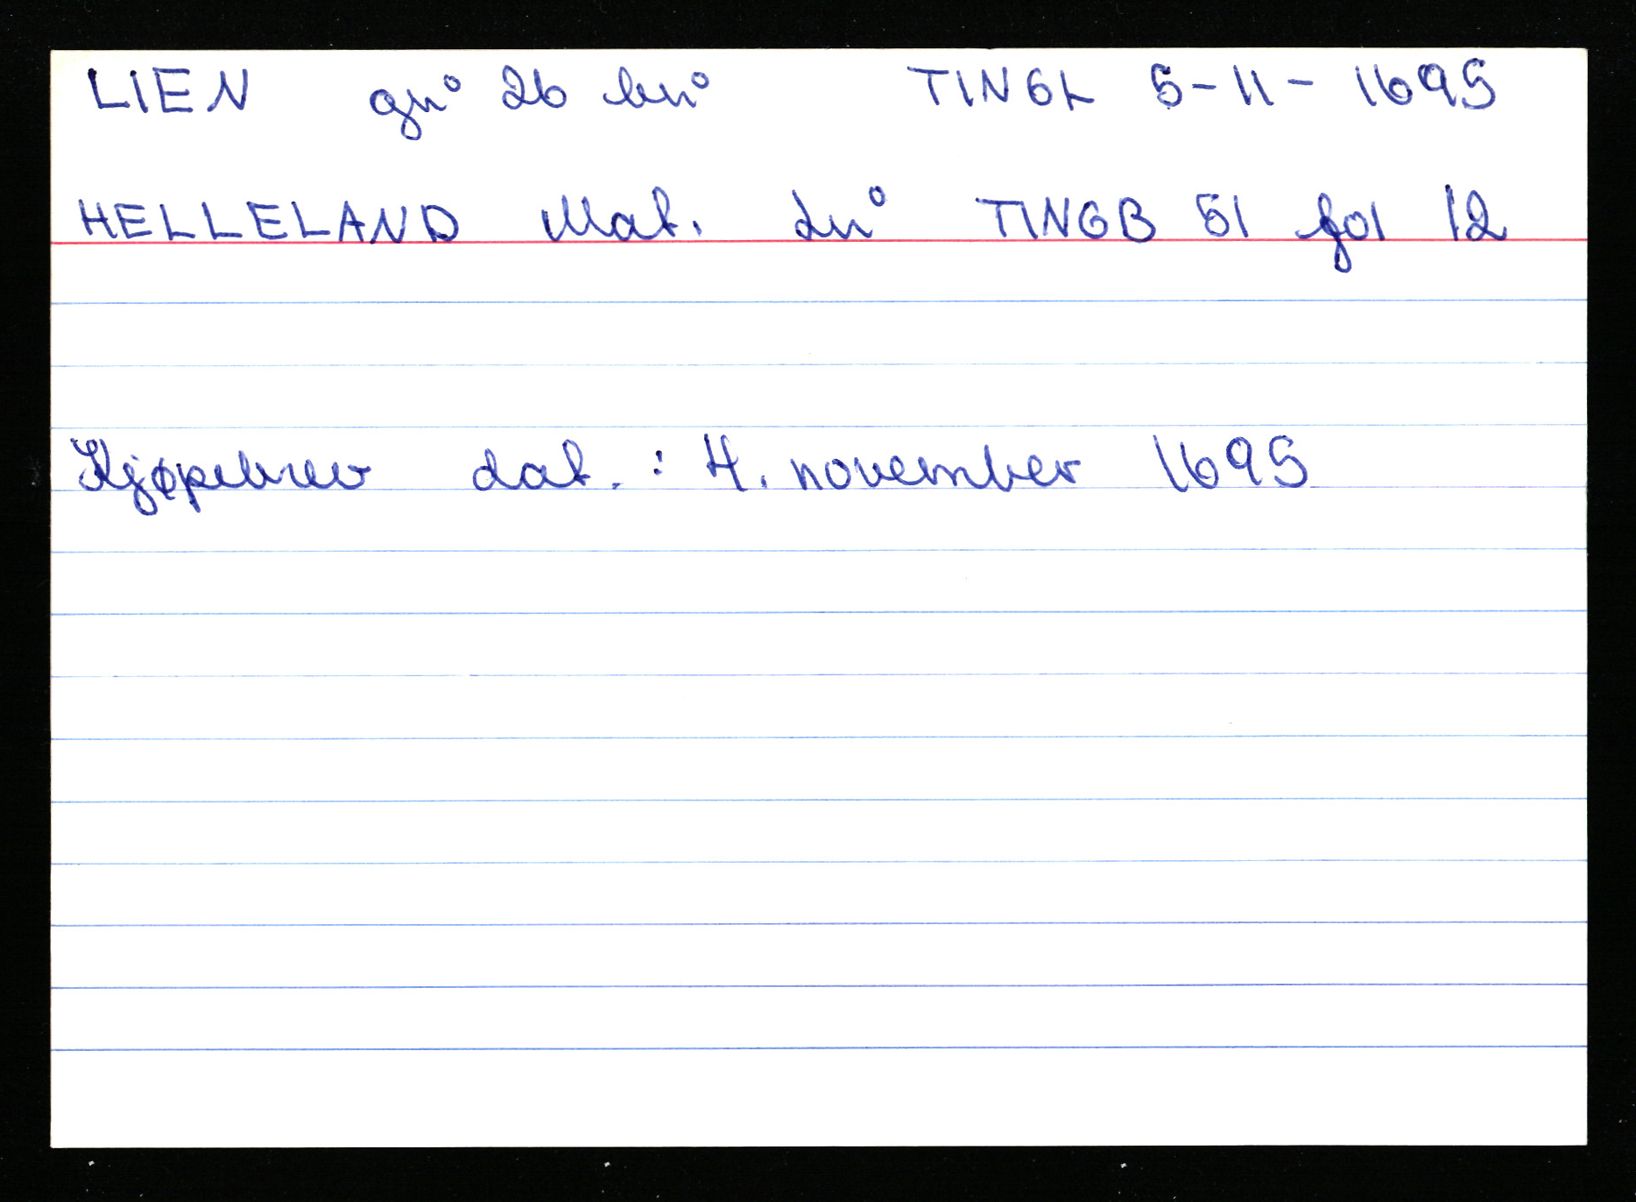 LIEN gn° 26 bn° TINGL 5-11-1695
HELLELAND Mat. Ln° TINGB 51 fol 12
Kjøpebrev dat. : 4. november 1695